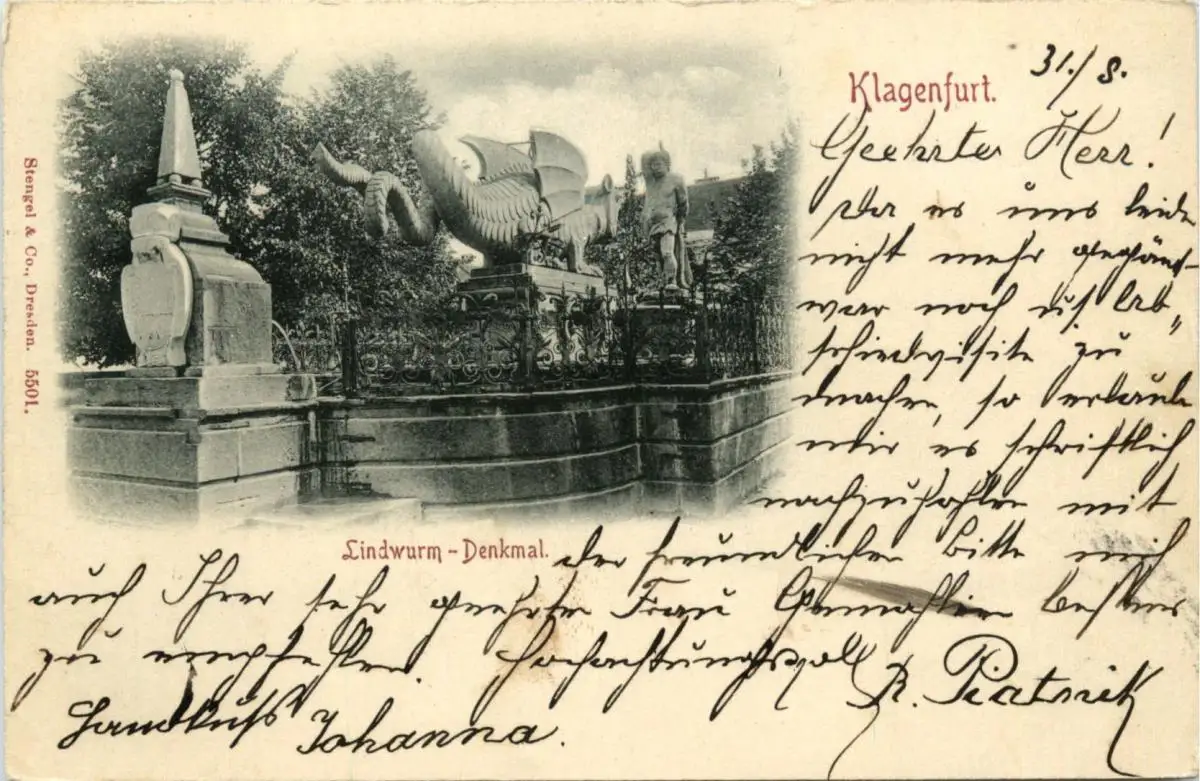 Klagenfurt.
31./8.
Geehrter Herr!
Da es uns leider
nicht mehr gegönnt
war noch uns. Ab„
schiedvisite zu
machen, so erlaube
mir es schriftlich
nachzuholen mit
Lindwurm-Denkmal.
der freundlichen Bitte mich
auch Ihrer sehr geehrten Frau Gemahlin bestens
zu empfehlen. Hochachtungsvoll R. Piatnik
Handkuß Johanna.
Stengel & Co., Dresden. 5501.